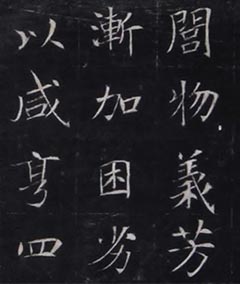 閭物義芳
漸加困劣
以咸亨四